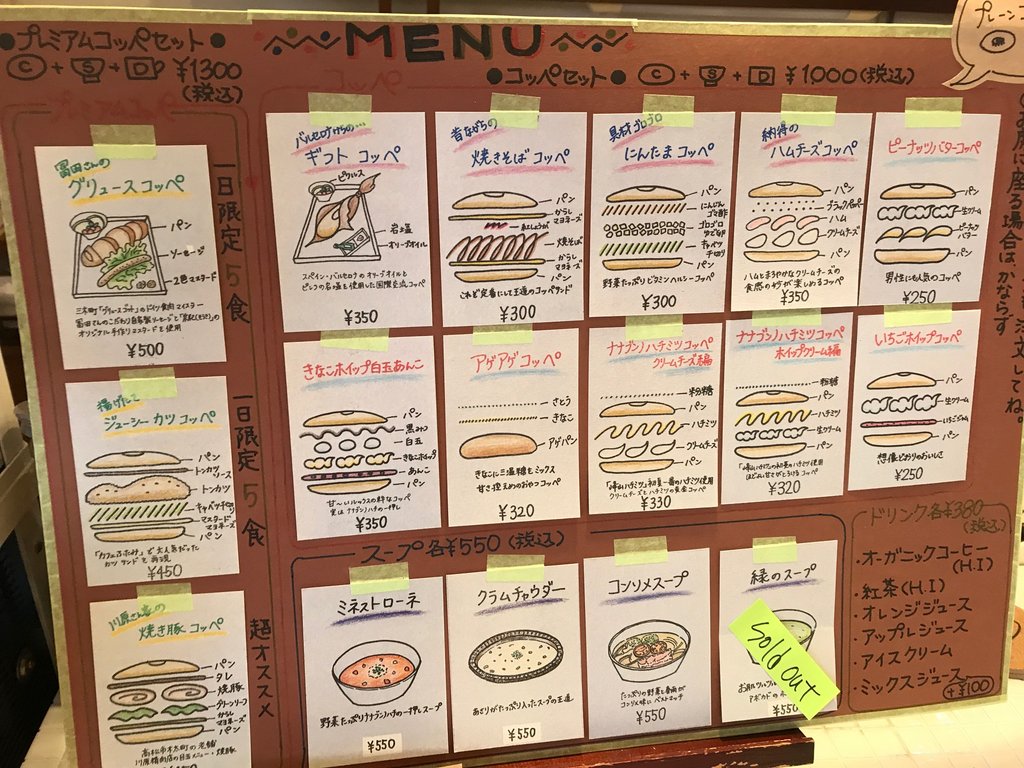 ●プレミアムコッペセット●
Ⓒ+Ⓢ+Ⓓ ¥1300
(税込)
MENU
●コッペセット● Ⓒ+Ⓢ+D ¥1,000(税込)
冨田さんの
グリュースコッペ
パン
ソーセージ
2色マスタード
三木町「グリュースゴット」のドイツ食肉マイスター
冨田さんのこだわり自家製ソーセージと
オリジナル手作りマスタードを使用
¥500
一日限定5食
揚げたこ
ジューシーカツコッペ
パン
トンカツソース
トンカツ
キャベツ千切り
マスタード
マヨネーズ
パン
「カフェふたみ」で大人気だった
カツサンドを再現
¥450
一日限定5食
川原さん家の
焼き豚コッペ
パン
タレ
焼豚
グリーンリーフ
からし
マヨネーズ
パン
高松市本太町の老舗
川原精肉店の目玉メニュー・焼豚
超オススメ
バルセロナからの…
ギフトコッペ
ピクルス
岩塩
オリーブオイル
スペイン・バルセロナのオリーブオイルと
ピレコの名塩を使用した国際交流コッペ
¥350
昔ながらの
焼きそばコッペ
パン
からし
マヨネーズ
紅しょうが
焼そば
からし
マヨネーズ
パン
これぞ定番にして王道のコッペサンド
¥300
具材ゴロゴロ
にんたまコッペ
パン
にんじん
ゴマ酢
ゴロゴロ
ゆで卵
キャベツ
千切り
パン
野菜たっぷりビタミンヘルシーコッペ
¥300
納得の
ハムチーズコッペ
パン
ブラックペッパー
ハム
クリームチーズ
パン
ハムとまろやかなクリームチーズの
食感の妙が楽しめるコッペ
¥350
ピーナッツバターコッペ
パン
生クリーム
ピーナッツ
バター
パン
男性にも人気のコッペ
¥250
きなこホイップ白玉あんこ
パン
黒みつ
白玉
きなこホイップ
あんこ
パン
甘~いルックスの粋なコッペ
実はナナゴンハチの一押し
¥350
アゲアゲコッペ
さとう
きなこ
アゲパン
きなこに三温糖をミックス
甘さ控えめのおやつコッペ
¥320
ナナゴンノハチミツコッペ
クリームチーズ編
粉糖
パン
ハチミツ
クリームチーズ
パン
クリームチーズとハチミツの黄金コッペ
¥330
ナナゴンノハチミツコッペ
ホイップクリーム編
粉糖
パン
ハチミツ
生クリーム
パン
ほどよい甘さがとろけるコッペ
¥320
いちごホイップコッペ
パン
生クリーム
いちごジャム
パン
想像どおりのおいしさ
¥250
スープ各¥550(税込)
ミネストローネ
野菜たっぷりナナゴンノハチの一押しスープ
¥550
クラムチャウダー
あさりがたっぷり入ったスープの王道
¥550
コンソメスープ
たっぷりの野菜と春雨が
コンソメ味にベストマッチ
¥550
緑のスープ
sold out
¥550
ドリンク各¥380
(税込)
・オーガニックコーヒー
(H.I)
・紅茶(H.I)
・オレンジジュース
・アップルジュース
・アイスクリーム
・ミックスジュース
(+¥100)